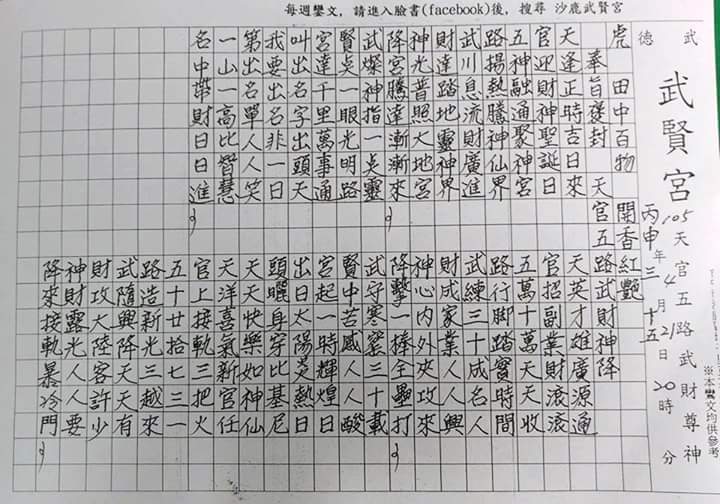 每週鑾文，請進入臉書(facebook)後，搜尋 沙鹿武賢宮
武德
武賢宮
105 天官五路武財尊神
丙申年三4月十五21日20時 分
※本鸞文均供參考
虎 田中百物 開香紅艷
奉旨 封 天官五路武財神降
天逢正時吉日來
官迎財神聖誕日
五神融通聚神宮
路揚熱騰神仙界
武川息流財廣進
財達踏地靈神界
神光普照大地宮
降宮騰達漸漸來
武燦神指一點靈
賢點一眼光明路
宮達千里萬事通
叫出名字出頭天
我要出名非一日
第出名單人人笑
一山一高比智慧
名中帶財日日進
天英才雄廣源通
官招副業財滾滾
五萬十萬天天收
路行脚踏寶時間
武練三十成名人
財成家業人人興
神心內外夾攻來
降擊一棒全壘打
武守寒窯三十載
賢中苦感人人酸
宮起一時輝煌日
出日太陽烹熱日
頭曬身穿比基尼
天天快樂如神仙
天洋喜氣新官任
官上接軌三把火
五十廿拾七三一
路造新光三越來
武隨興降天天有
財攻大陸客許少
神財露光人人要
降來接軌暴冷門